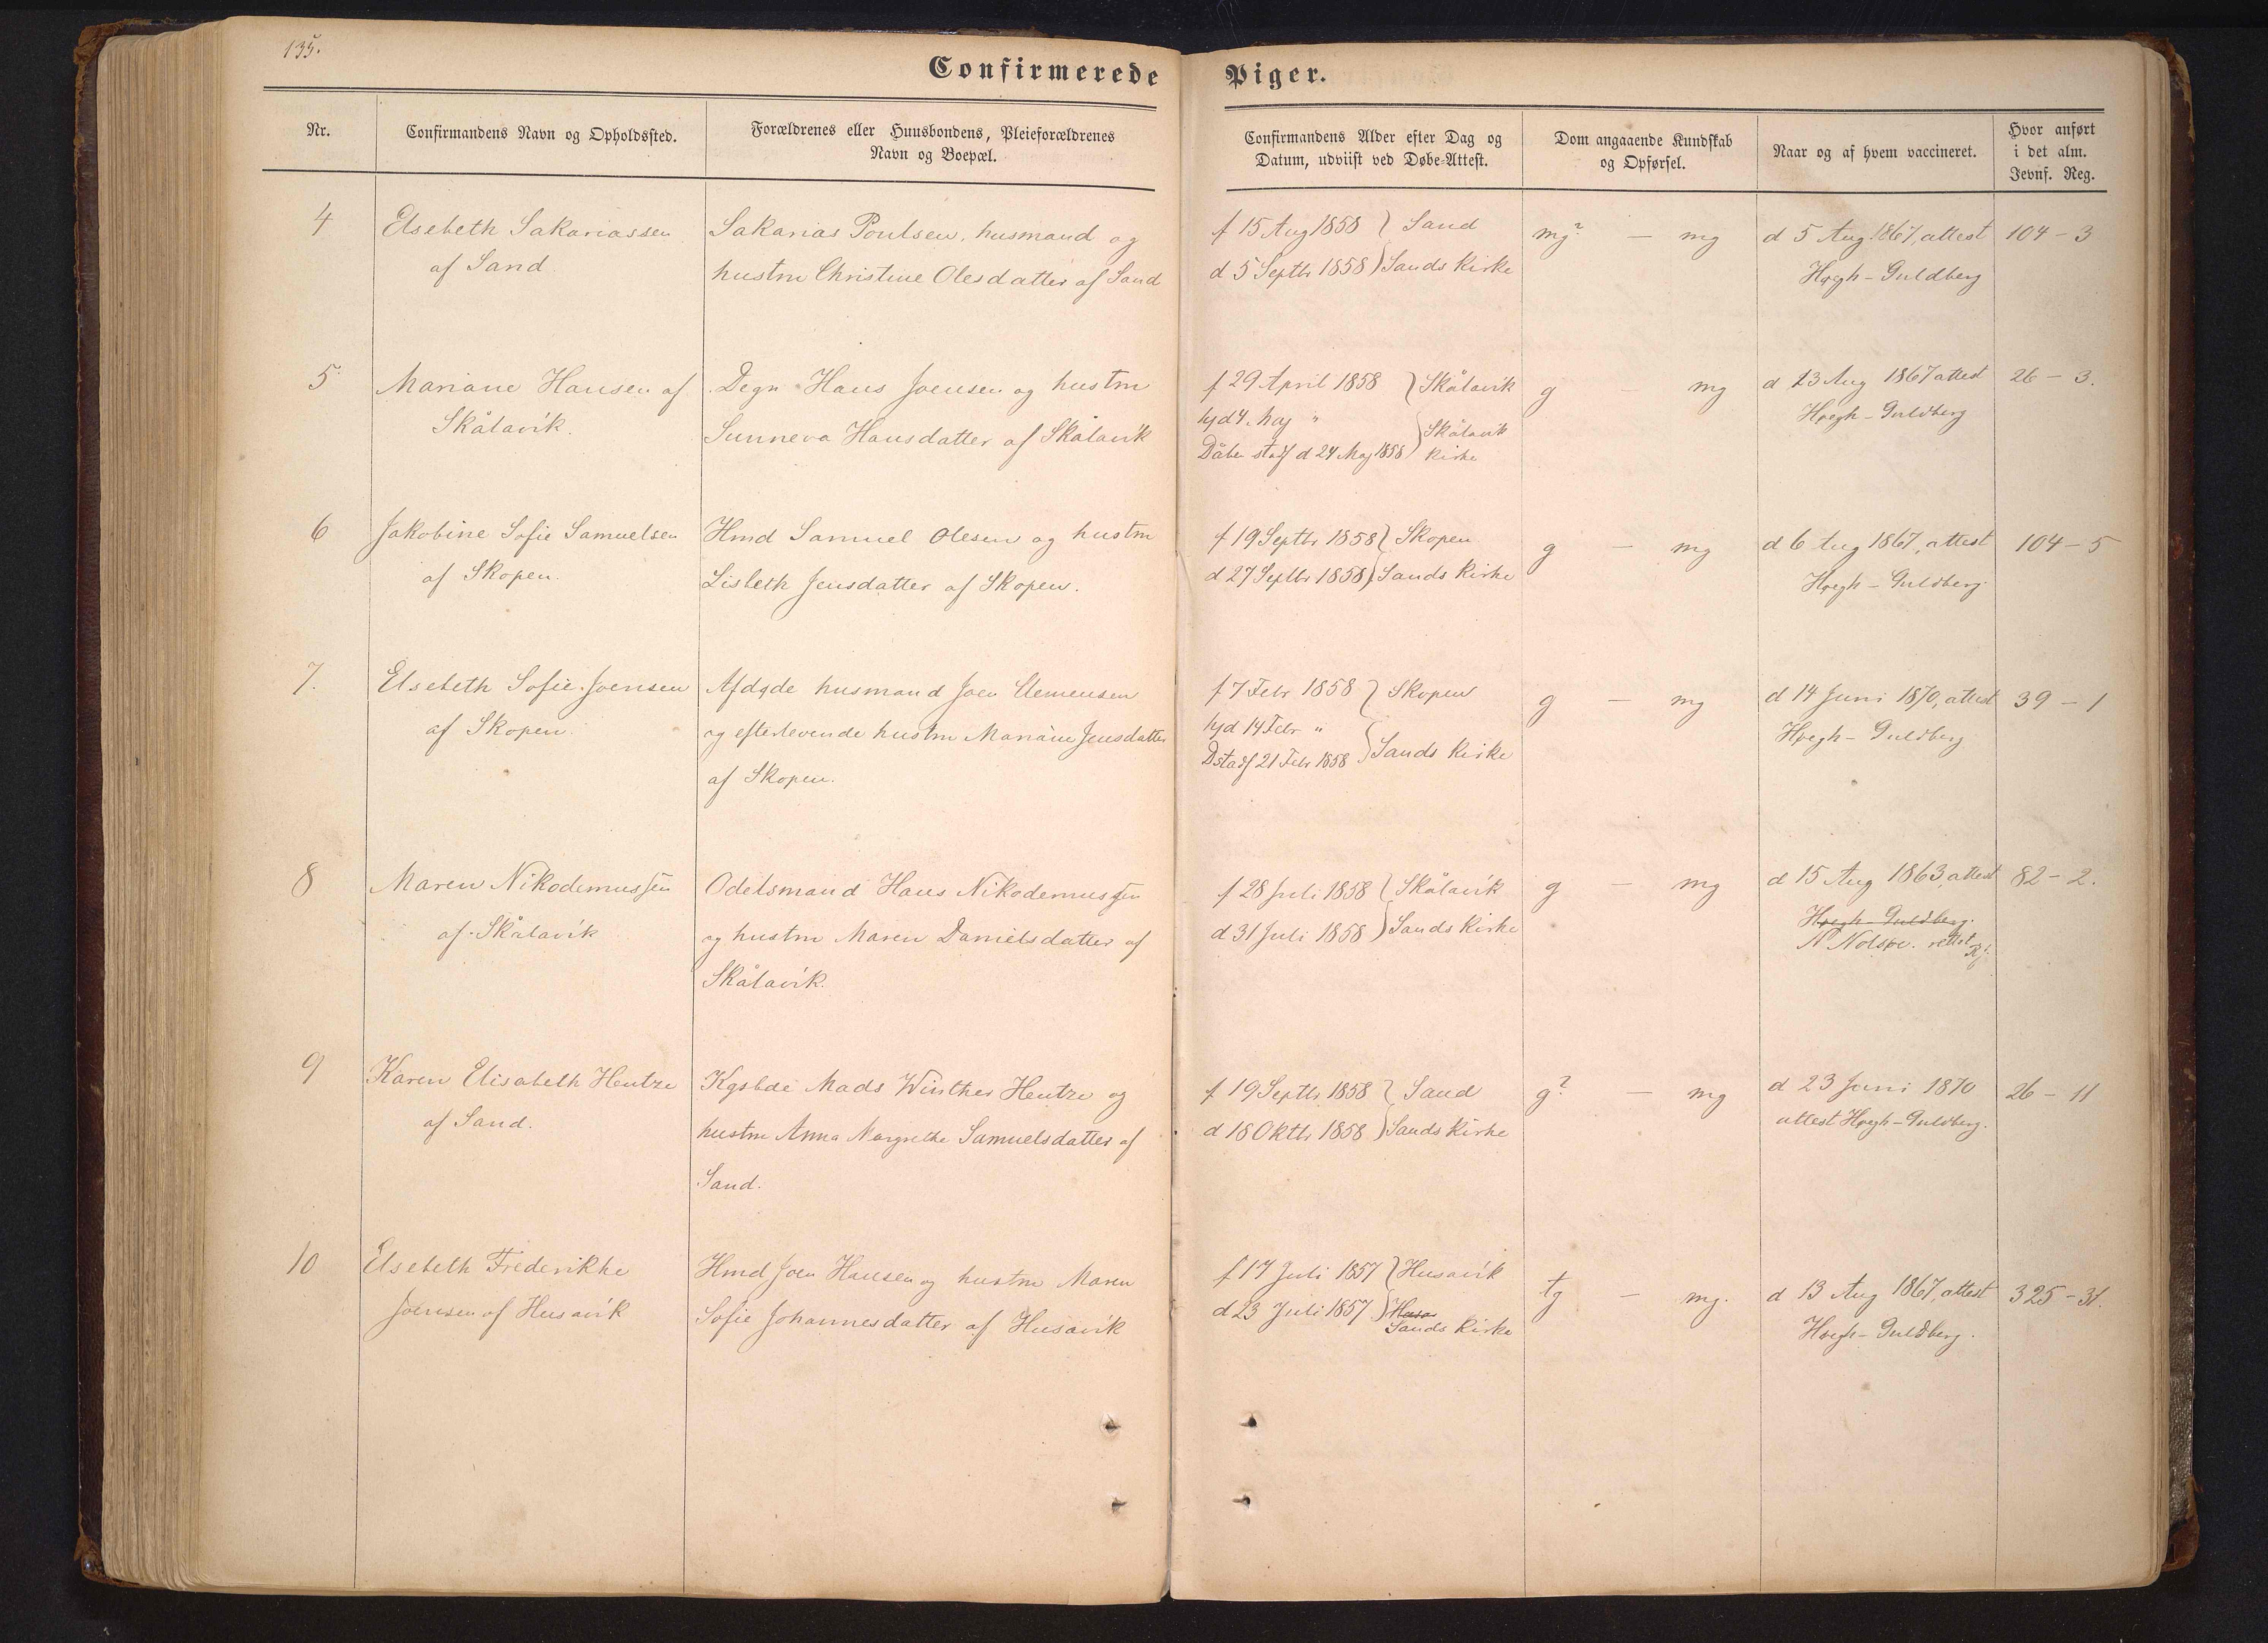 135.
Confirmerede Piger.
Nr.
Confirmandens Navn og Opholdssted.
Forældrenes eller Huusbondens, Pleieforældrenes
Navn og Boepæl.
Confirmandens Alder efter Dag og
Datum, udviist ved Døbe-Attest.
Dom angaaende Kundskab
og Opførsel.
Naar og af hvem vaccineret.
Hvor anført
i det alm.
Jevnf. Reg.
4
Elsebeth Sakariassen
af Sand
Sakarias Poulsen, husmand og
hustru Christine Olesdatter af Sand
f 15 Aug 1858 } Sand
d 5 Septbr 1858 } Sands Kirke
mg? — mg
d 5 Aug 1867, attest
Høegh-Guldberg
104 - 3
5
Mariane Hansen af
Skålavík.
Degn Hans Joensen og hustru
Sunneva Hansdatter af Skålavík
f 29 April 1858 } Skålavík
hjd 4. Maj "
Dåben stadf d 24 Maj 1858 } Skålavik
Kirke
g — mg
d 23 Aug 1867 attest
Høegh-Guldberg
26 - 3.
6
Jakobine Sofie Samuelsen
af Skopen.
Hmd Samuel Olesen og hustru
Lisbeth Jensdatter af Skopen.
f 19 Septbr 1858 } Skopen
d 27 Septbr 1858 } Sands Kirke
g — mg
d 6 Aug 1867, attest
Høegh-Guldberg.
104 - 5
7.
Elsebeth Sofie Joensen
af Skopen.
Afdøde husmand Joen Clemensen
og efterlevende hustru Mariane Jensdatter
af Skopen.
f 7 Febr 1858 } Skopen
hjd 14 Febr "
D stadf 21 Febr 1858 } Sands Kirke
g — mg
d 14 Juni 1870, attest
Høegh-Guldberg
39 - 1
8
Maren Nikodemussen
af Skålavík
Odelsmand Hans Nikodemussen
og hustru Maren Danielsdatter af
Skålavík.
f 28 Juli 1858 } Skålavík
d 31 Juli 1858 } Sands Kirke
g — mg
d 15 Aug 1863, attest
Høegh-Guldberg.
N Nolsøe. rettet
82 - 2.
9
Karen Elisabeth Hentze
af Sand.
Kgsbde Mads Winther Hentze og
hustru Anna Margrethe Samuelsdatter af
Sand.
f 19 Septbr 1858 } Sand
d 18 Oktbr 1858 } Sands Kirke
g? — mg
d 23 Juni 1870
attest Høegh-Guldberg.
26 - 11
10
Elsebeth Frederikke
Joensen af Husavík
Hmd Joen Hansen og hustru Maren
Sofie Johannesdatter af Husavík
f 17 Juli 1857 } Husavík
d 23 Juli 1857 } Husa
Sands Kirke
tg — mg.
d 13 Aug 1867, attest
Høegh-Guldberg.
325 - 31.